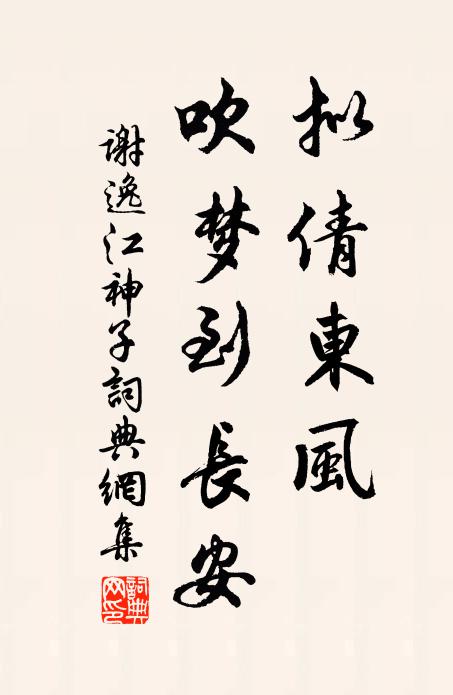 拟倩東風
吹梦到長安
謝逸江神子詞典網集
詞典網印